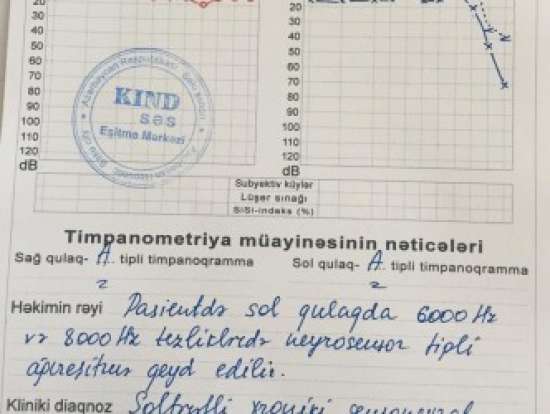 20 20
30 30
40 40
50 50
60 60
70 70
80 80
90 90
100 100
110 110
120 120
dB dB
Azərbaycan Respublikası
KIND
səs
Eşitmə Mərkəzi
Subyektiv küylər
Lüşer sınağı
SİSİ-indeks (%)
Timpanometriya müayinəsinin nəticələri
Sağ qulaq- A tipli timpanoqramma Sol qulaq- A tipli timpanoqramma
Həkimin rəyi Pasientdə sol qulaqda 6000 Hz
və 8000 Hz tezliklərdə neyrosensor tipli
geyd edilir.
Kliniki diaqnoz Soltərəfli xroniki